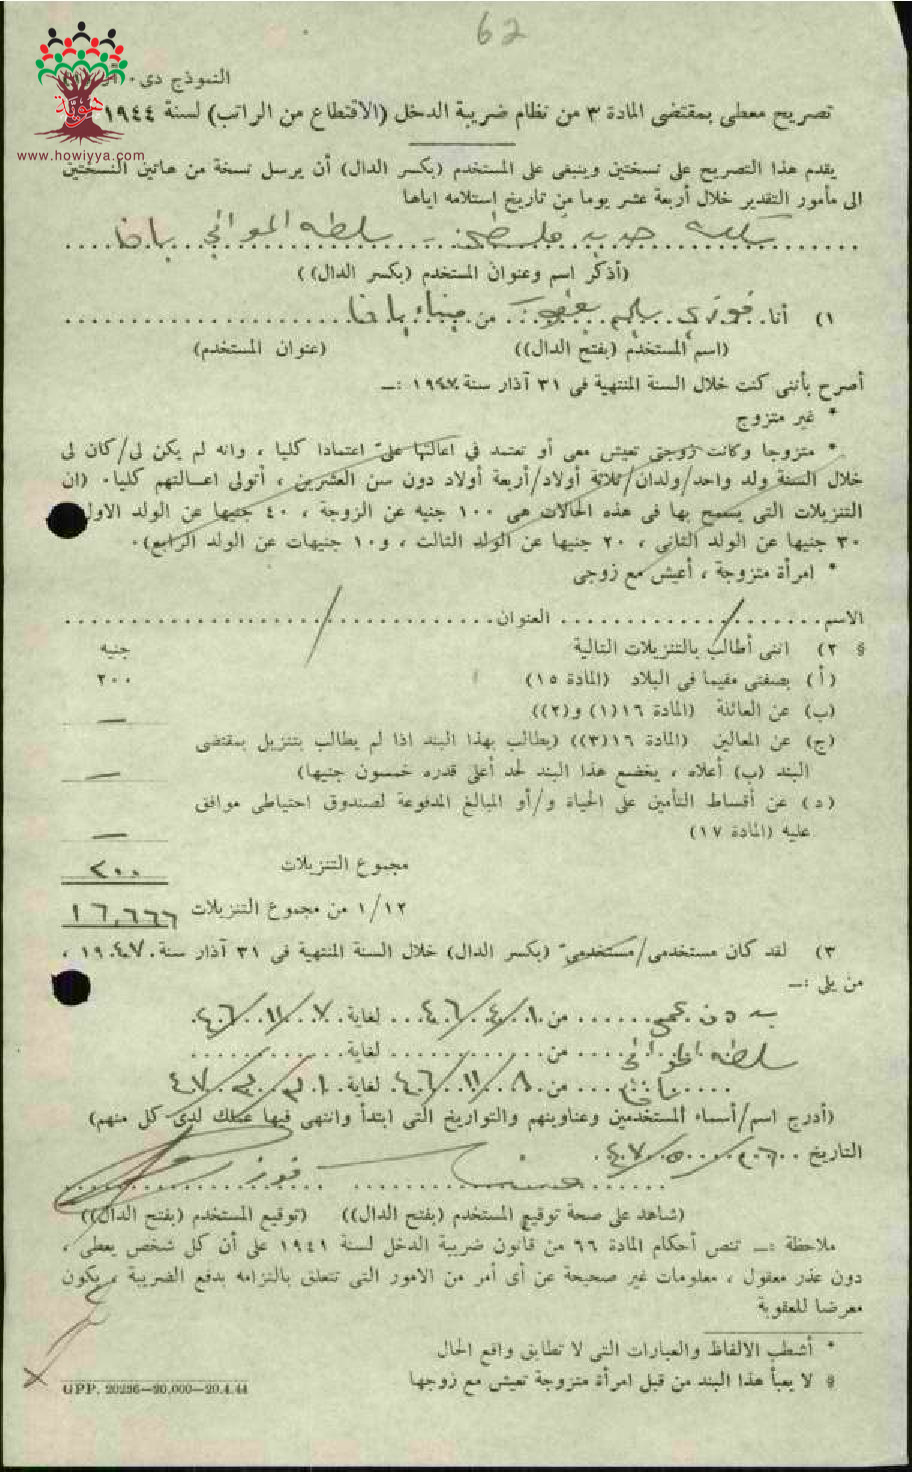 62
النموذج دى٠
هوية
www.howiyya.com
تصريح معطى بمقتضى المادة ٣ من نظام ضريبة الدخل (الاقتطاع من الراتب) لسنة ١٩٤٤
يقدم هذا التصريح على نسختين وينبغى على المستخدم (بكسر الدال) أن يرسل نسخة من هاتين النسختين
الى مأمور التقدير خلال أربعة عشر يوما من تاريخ استلامه اياها
سكة حديد فلسطين - سلطة الموانئ يافا
(أذكر اسم وعنوان المستخدم (بكسر الدال))
١) أنا فوزي سليم من ميناء يافا
(اسم المستخدم (بفتح الدال)) (عنوان المستخدم)
أصرح بأننى كنت خلال السنة المنتهية فى ٣١ آذار سنة ١٩٤٧ :ـ
* غير متزوج
* متزوجا وكانت زوجتى تعيش معى أو تعتمد في اعالتها علىّ اعتمادا كليا ، وانه لم يكن لى/كان لى
خلال السنة ولد واحد/ولدان/ثلاثة أولاد/أربعة أولاد دون سن العشرين ، أتولى اعالتهم كليا٠ (ان
التنزيلات التى يسمح بها فى هذه الحالات هى ١٠٠ جنيه عن الزوجة ، ٤٠ جنيها عن الولد الاول
٣٠ جنيها عن الولد الثانى ، ٢٠ جنيها عن الولد الثالث ، و١٠ جنيهات عن الولد الرابع)٠
* امرأة متزوجة ، أعيش مع زوجى
الاسم / العنوان /
§ ٢) اننى أطالب بالتنزيلات التالية جنيه
(أ) بصفتى مقيما فى البلاد (المادة ١٥) ٢٠٠
(ب) عن العائلة (المادة ١٦(١) و(٢)) —
(ج) عن المعالين (المادة ١٦(٣)) (يطالب بهذا البند اذا لم يطالب بتنزيل بمقتضى
البند (ب) أعلاه ، يخضع هذا البند لحد أعلى قدره خمسون جنيها) —
(د) عن أقساط التأمين على الحياة و/أو المبالغ المدفوعة لصندوق احتياطى موافق
عليه (المادة ١٧) —
مجموع التنزيلات ٢٠٠
١/١٢ من مجموع التنزيلات ١٦,٦٦٦
٣) لقد كان مستخدمى/مستخدمىّ (بكسر الدال) خلال السنة المنتهية فى ٣١ آذار سنة ١٩٤٧ ،
من يلى :ـ
بدون عمل من ١/٤/٤٦ لغاية ٧/١١/٤٦
سلطة الموانئ من لغاية
يافا من ٨/١١/٤٦ لغاية ٣١/٣/٤٧
(أدرج اسم/أسماء المستخدمين وعناوينهم والتواريخ التى ابتدأ وانتهى فيها عملك لدى كل منهم)
التاريخ ٢٦/٥/٤٧
فوزي
(شاهد على صحة توقيع المستخدم (بفتح الدال)) (توقيع المستخدم (بفتح الدال))
ملاحظة :ـ تنص أحكام المادة ٦٦ من قانون ضريبة الدخل لسنة ١٩٤١ على أن كل شخص يعطى ،
دون عذر معقول ، معلومات غير صحيحة عن أى أمر من الامور التى تتعلق بالتزامه بدفع الضريبة ، يكون
معرضا للعقوبة
* أشطب الالفاظ والعبارات التى لا تطابق واقع الحال
§ لا يعبأ هذا البند من قبل امرأة متزوجة تعيش مع زوجها
GPP. 20236—20,000—20.4.44